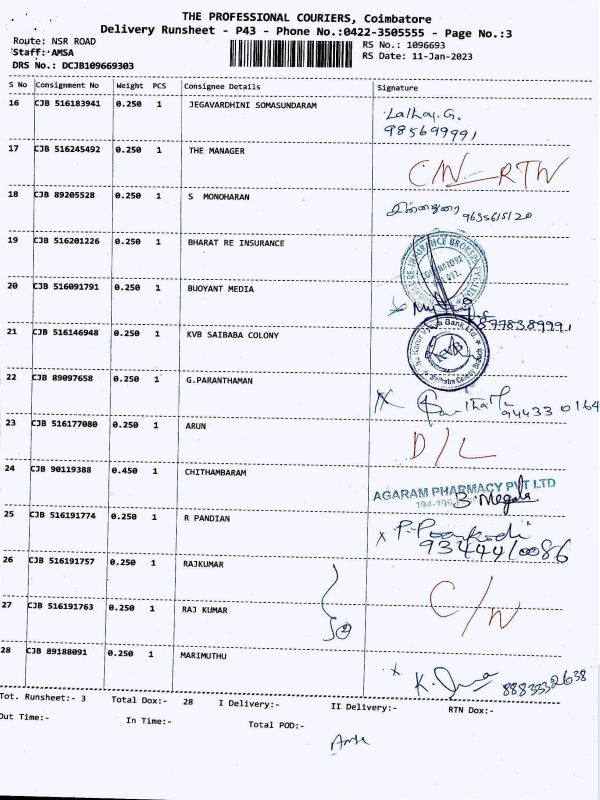 THE PROFESSIONAL COURIERS, Coimbatore
Delivery Runsheet - P43 - Phone No.:0422-3505555 - Page No.:3
Route: NSR ROAD
RS No.: 1096693
Staff: AMSA
RS Date: 11-Jan-2023
DRS No.: DCJB109669303
S No Consignment No Weight PCS Consignee Details Signature
16 CJB 516183941 0.250 1 JEGAVARDHINI SOMASUNDARAM
985699991
17 CJB 516245492 0.250 1 THE MANAGER C/N - RTN
18 CJB 89205528 0.250 1 S MONOHARAN
19 CJB 516201226 0.250 1 BHARAT RE INSURANCE
20 CJB 516091791 0.250 1 BUOYANT MEDIA
21 CJB 516146948 0.250 1 KVB SAIBABA COLONY KVB
22 CJB 89097658 0.250 1 G.PARANTHAMAN
944330164
23 CJB 516177080 0.250 1 ARUN D/L
24 CJB 90119388 0.450 1 CHITHAMBARAM AGARAM PHARMACY PVT LTD
B. Megala
25 CJB 516191774 0.250 1 R PANDIAN
9344410086
26 CJB 516191757 0.250 1 RAJKUMAR C/N
27 CJB 516191763 0.250 1 RAJ KUMAR
28 CJB 89188091 0.250 1 MARIMUTHU
Tot. Runsheet:- 3 Total Dox:- 28 I Delivery:- II Delivery:- RTN Dox:-
Out Time:- In Time:- Total POD:-
Amsa